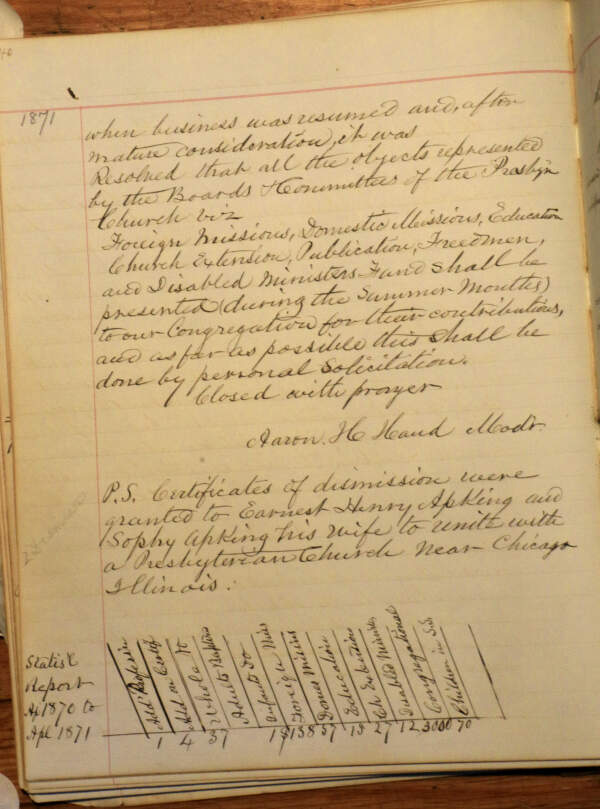 1871
when business was resumed and, after
mature consideration, it was
Resolved that all the objects represented
by the Boards & Committees of the Presbyn
Church viz
Foreign Missions, Domestic Missions, Education
Church Extension, Publication, Freedmen,
and Disabled Ministers Fund shall be
presented (during the Summer Months)
to our Congregation for their contributions,
and as far as possible this shall be
done by personal Solicitation.
Closed with prayer
Aaron. H. Hand Modr.
P.S. Certificates of dismission were
granted to Earnest Henry Apking and
Sophy Apking his wife to unite with
a Presbyterian Church near Chicago
Illinois.
Statisl
Report
Apl 1870 to
Apl 1871
Add Profession
Add on Certif
Whole No
Adults Do
Foreign Missns
Domes Missns
Education
Ch Extection
Disabled Minist
Congregational
Children in S.S.
1 4 57
138 57 13 27 12 3000 70